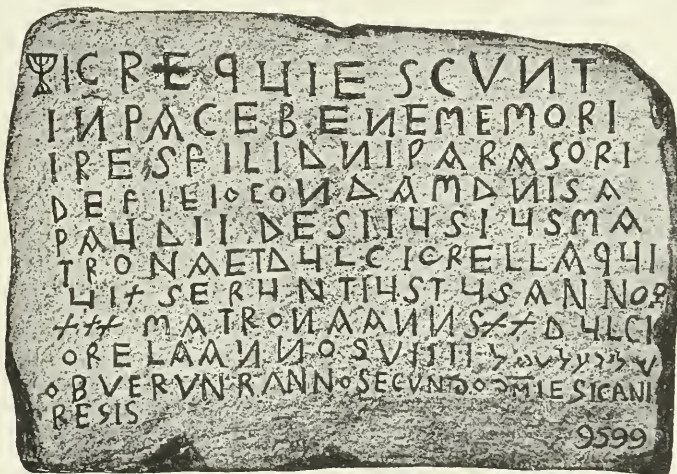 ICREQUIESCVNT
INPACEBENEMEMORI
IRESFILIDNIPARASORI
DEFIEIOCONDAMDNISA
PAUDII DESIIUSIUSMA
TRONAETDULCICRELLAQUI
UIXSERUNTIUSTUSANNOS
XXX MATRONAANNSXXDULCI
ORELAANNOSVIIII
OBVERVNRANNOSECVNDODMIESICANI
RESIS
9599